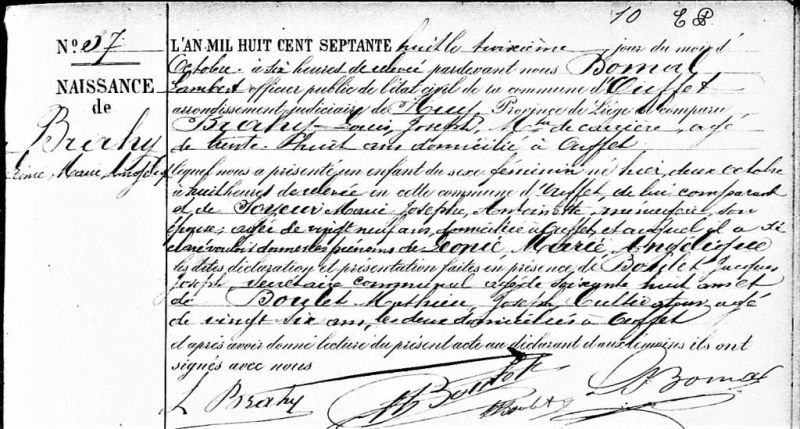 10 EB
N° 57
NAISSANCE
de
Brahy
Léonie Marie Angélique
L'AN MIL HUIT CENT SEPTANTE huit le troisième jour du mois d'
Octobre à six heures de relevée pardevant nous Bomal
Lambert officier public de l'état civil de la commune d'Ouffet
arrondissement judiciaire de Huy Province de Liége est comparu
Brahy Louis Joseph, Mtre de carrière, agé
de trente-huit ans domicilié à Ouffet
lequel nous a présenté un enfant du sexe féminin né hier deux octobre
à huit heures de relevée en cette commune d'Ouffet de lui comparant
et de Joyeux Marie Josephe Antoinette, son
épouse agée de vingt neuf ans, domiciliée à Ouffet et auquel il a dé
claré vouloir donner les prénoms de Léonie Marie Angélique
les dites déclaration et présentation faites en présence de Boulet Jacques
Joseph, secrétaire communal agé de soixante huit ans et
de Boulet Mathieu Joseph Cultivateur agé
de vingt six ans, les deux domiciliés à Ouffet
et après avoir donné lecture du présent acte au déclarant et aux témoins ils ont
signés avec nous
L Brahy Boulet Boulet Bomal